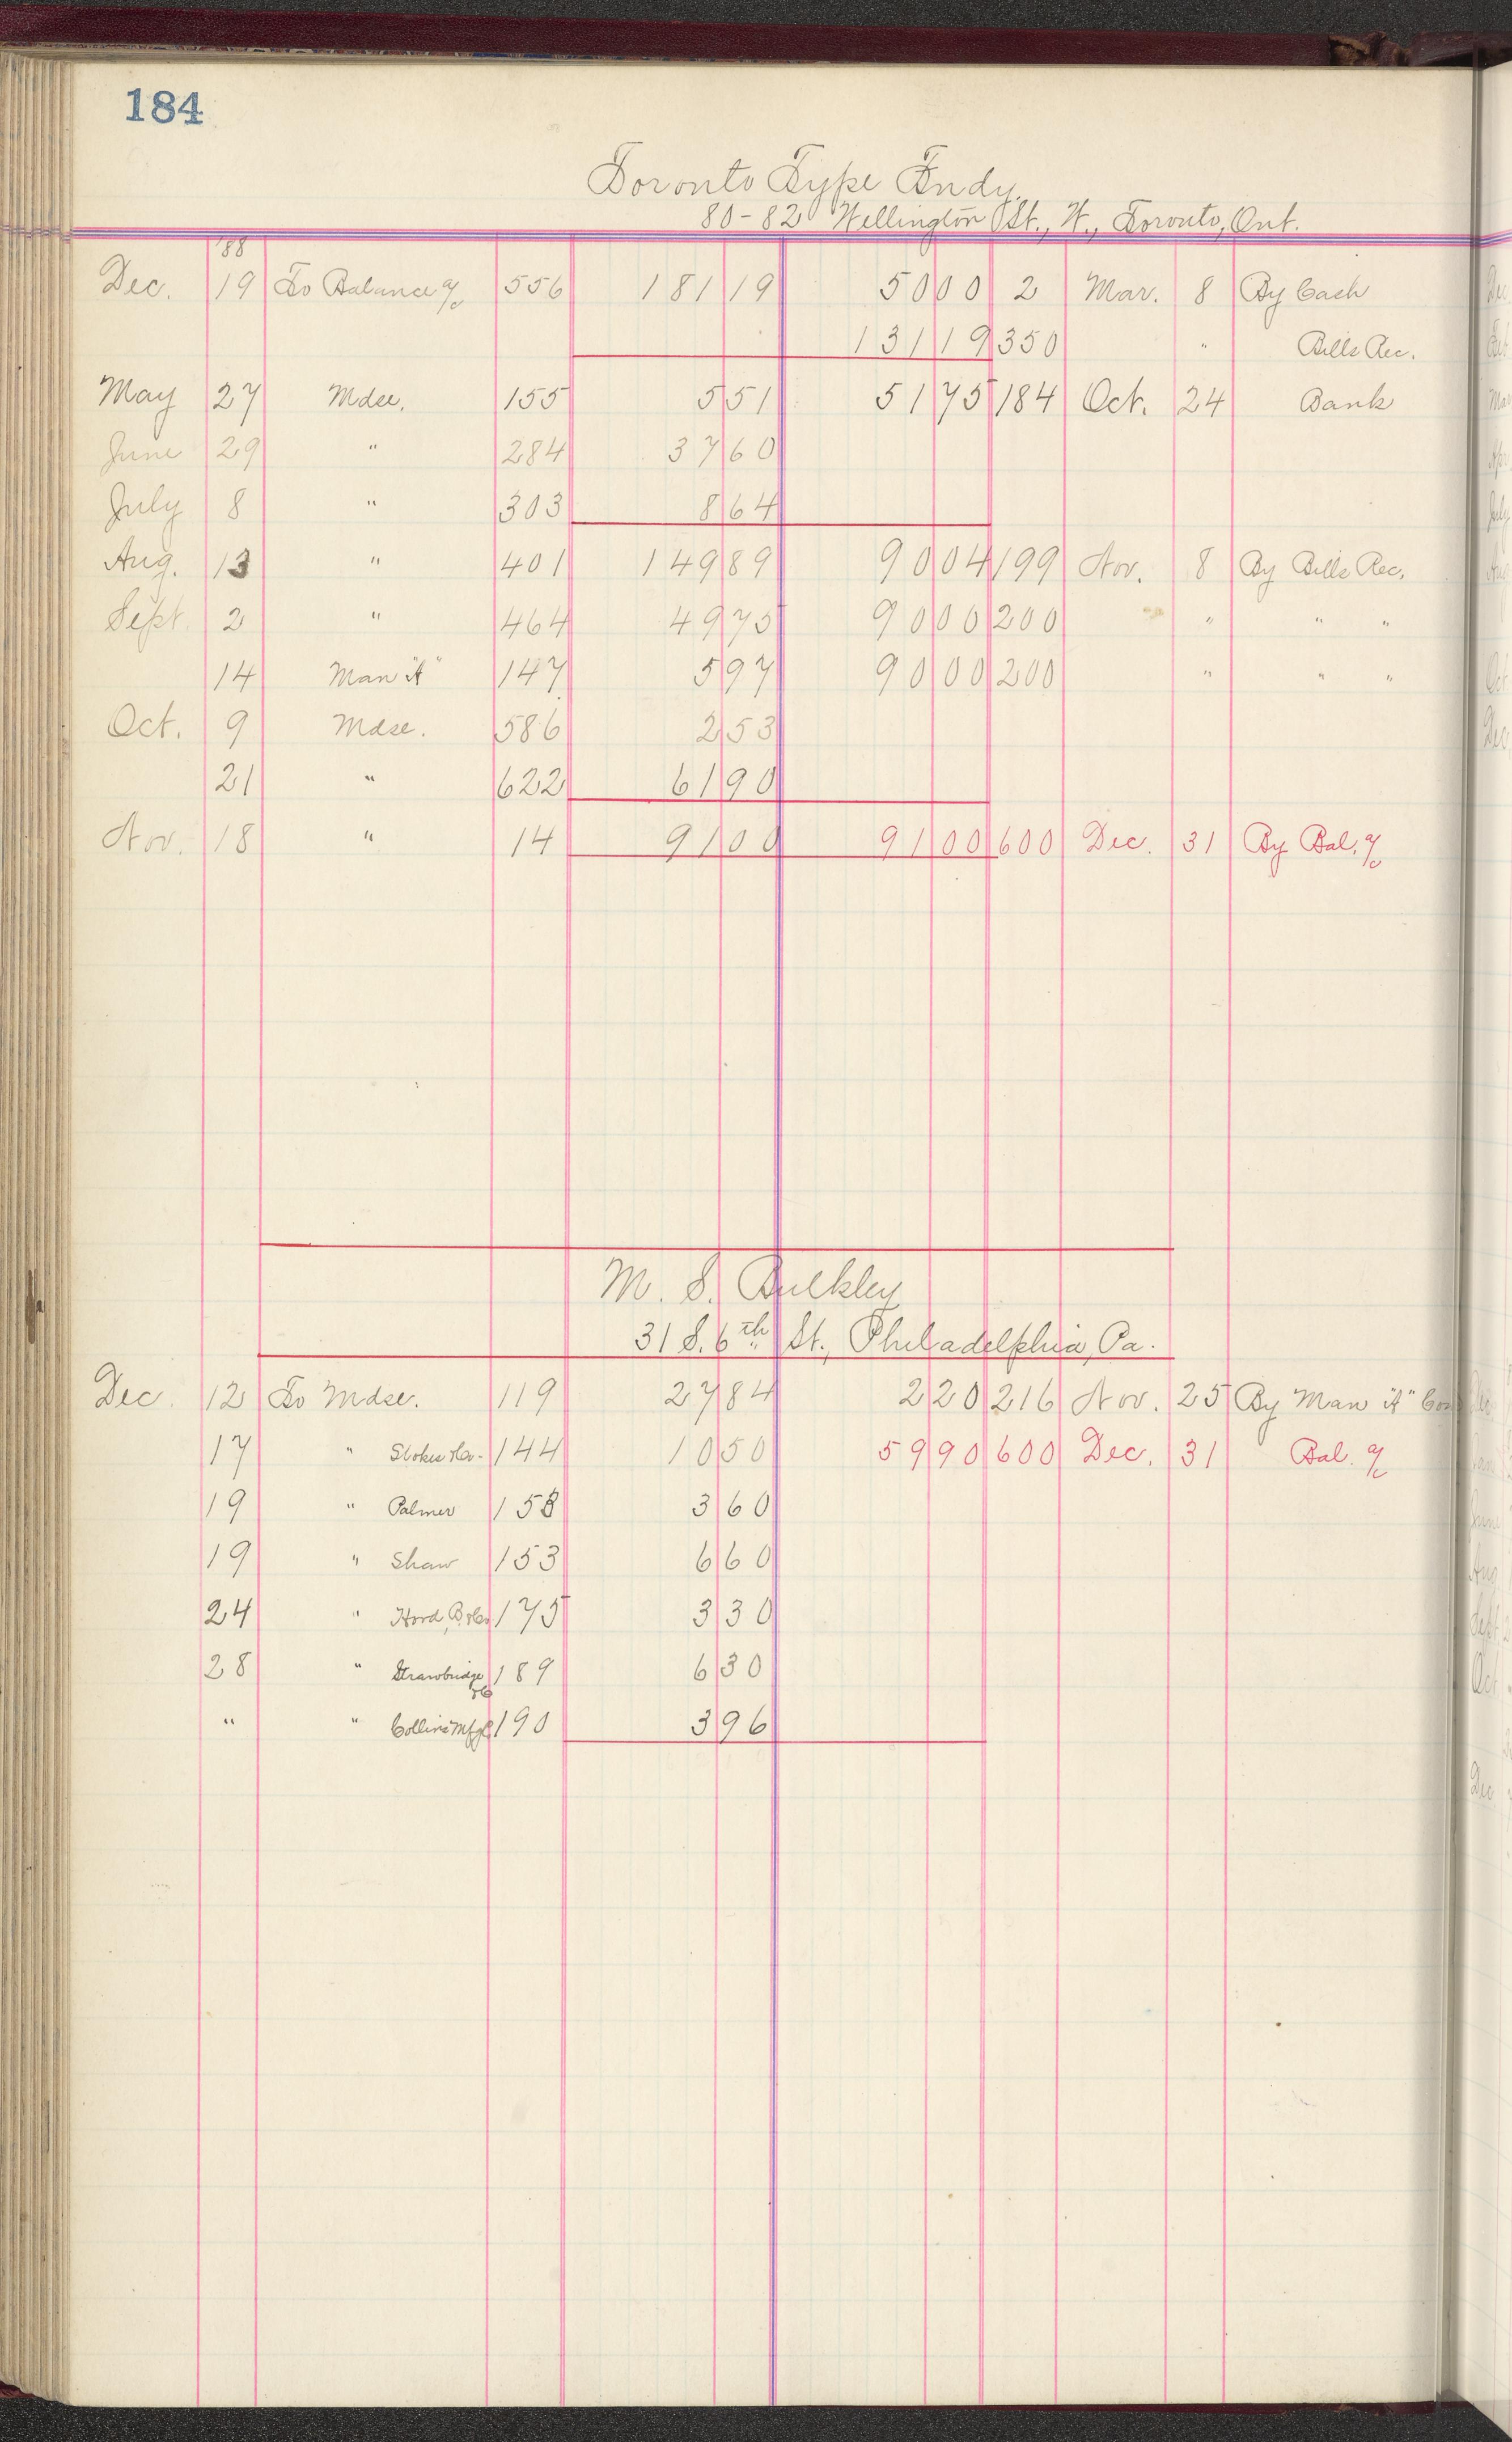 184
Toronto Type Fndy.
80-82 Wellington St., W., Toronto, Ont.
'88
Dec. 19 To Balance a/c 556 181 19 50 00 2 Mar. 8 By Cash
131 19 350 " Bills Rec.
May 27 Mdse. 155 5 51 51 75 184 Oct. 24 Bank
June 29 " 284 37 60
July 8 " 303 8 64
Aug. 13 " 401 149 89 90 04 199 Nov. 8 By Bills Rec.
Sept. 2 " 464 49 75 90 00 200 " " "
14 Man "A" 147 5 97 90 00 200 " " "
Oct. 9 Mdse. 586 2 53
21 " 622 61 90
Nov. 18 " 14 91 00 91 00 600 Dec. 31 By Bal. a/c
M. S. Bulkley
31 S. 6th St., Philadelphia, Pa.
Dec. 12 To Mdse. 119 27 84 2 20 216 Nov. 25 By Man "A"
17 " Stokes &Co. 144 10 50 59 90 600 Dec. 31 Bal. a/c
19 " Palmer 158 3 60
19 " Shaw 153 6 60
24 " Hord, B. &Co. 175 3 30
28 " Strawbridge &C 189 6 30
" " Collins Mfg Co 190 3 96